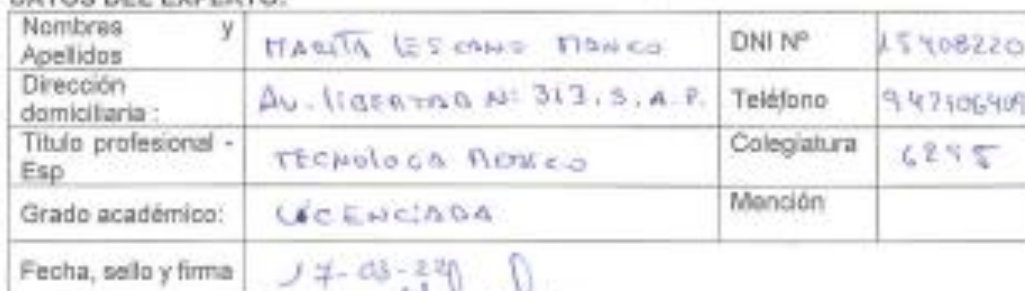 DATOS DEL EXPERTO:
Nombres y Apellidos MARITA LESCANO MANCO DNI Nº 15408220
Dirección domiciliaria : Av. LIBERTAD Nº 313. S. A. P. Teléfono 947106409
Titulo profesional - Esp TECNOLOGA MEDICO Colegiatura
Grado académico: LICENCIADA Mención
Fecha, sello y firma 17-03-22